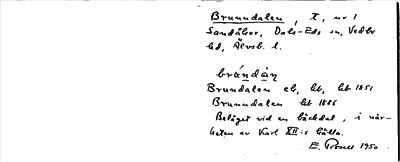 Brunndalen, T, nr 1
Sandåker, Dals-Eds sn, Vedbo
hd, Älvsb. l.
brándàn
Brunndalen eb, hb, kb 1851
Brunndalen hb 1886
Beläget vid en bäckdal, i när-
heten av Karl XII:s källa.
E. 1950